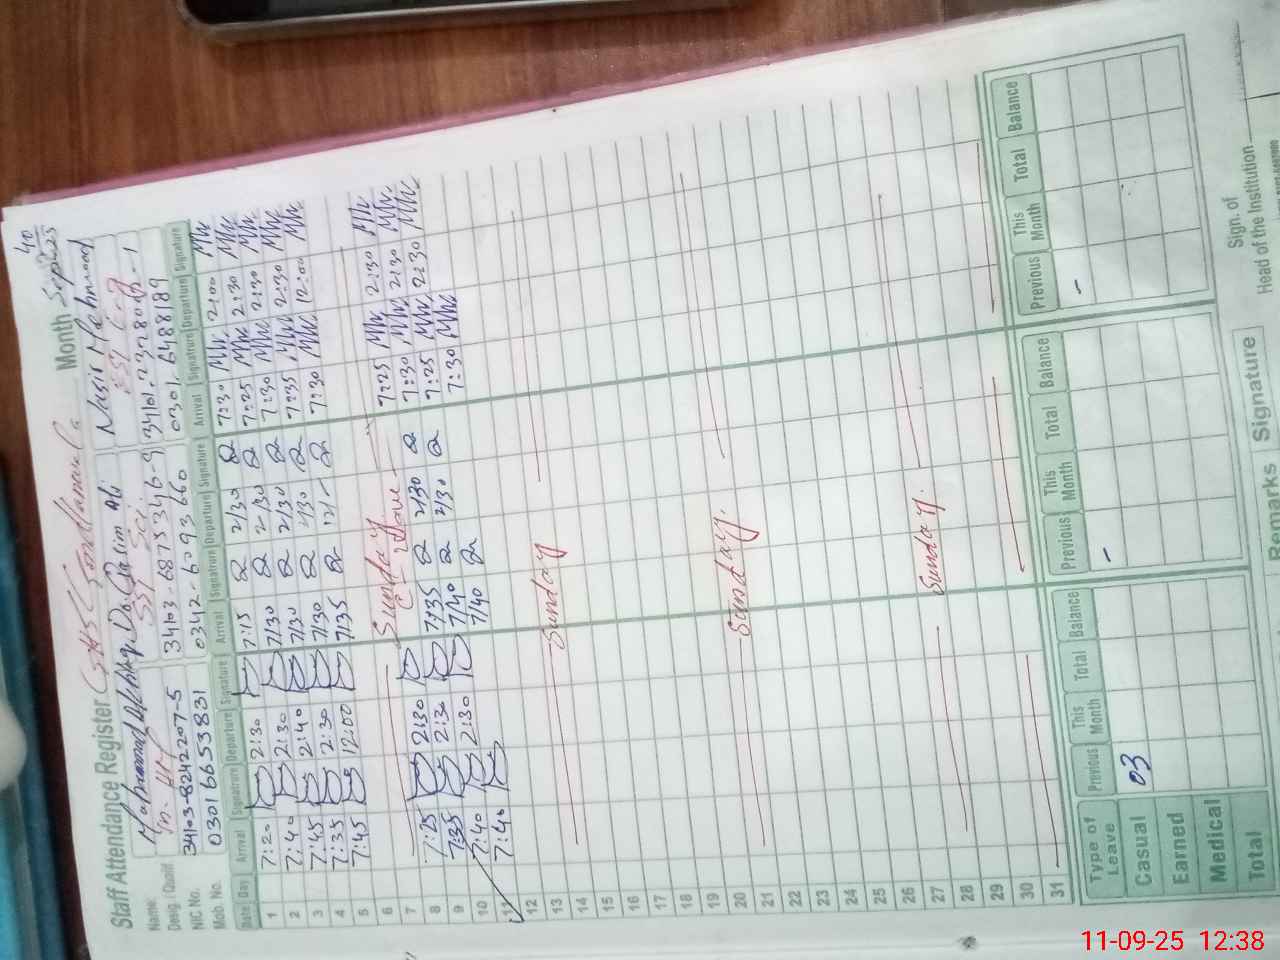 40
Staff Attendance Register GHS Month Sep 25
Name: Muhammad Qasim Ali Nasir Mehmood
Desig. / Qualif. In. HM SST Sci.
NIC No. 34103-8242207-5 34103-6875346-9
Mob. No. 03016665383 0342-6093660 0301.6488189
Date Day Arrival Signature Departure Signature Arrival Signature Departure Signature Arrival Signature Departure Signature
1 7:20 2:30 7:15 2/30 7:30 2:00
2 7:40 2:30 7/30 2/30 7:25 2:30
3 7:45 2:40 7/30 2/30 7:30 2:30
4 7:35 2:30 7/30 2/30 7:35 2:30
5 7:45 12:00 7/35 12/- 7:30 12:00
6
7 Sunday
8 7:25 2:30 C. Leave 7:25 2:30
9 7:35 2:30 7/35 2/30 7:30 2:30
10 7:40 2:30 7/40 2/30 7:25 2:30
11 7:40 7/40 7:30
12
13
14 Sunday
15
16
17
18
19
20
21 Sunday
22
23
24
25
26
27
28 Sunday
29
30
31
Type of Leave Previous This Month Total Balance Previous This Month Total Balance Previous This Month Total Balance
Casual 03 - -
Earned
Medical
Total
Remarks Signature
Sign. of
Head of the Institution
11-09-25 12:38